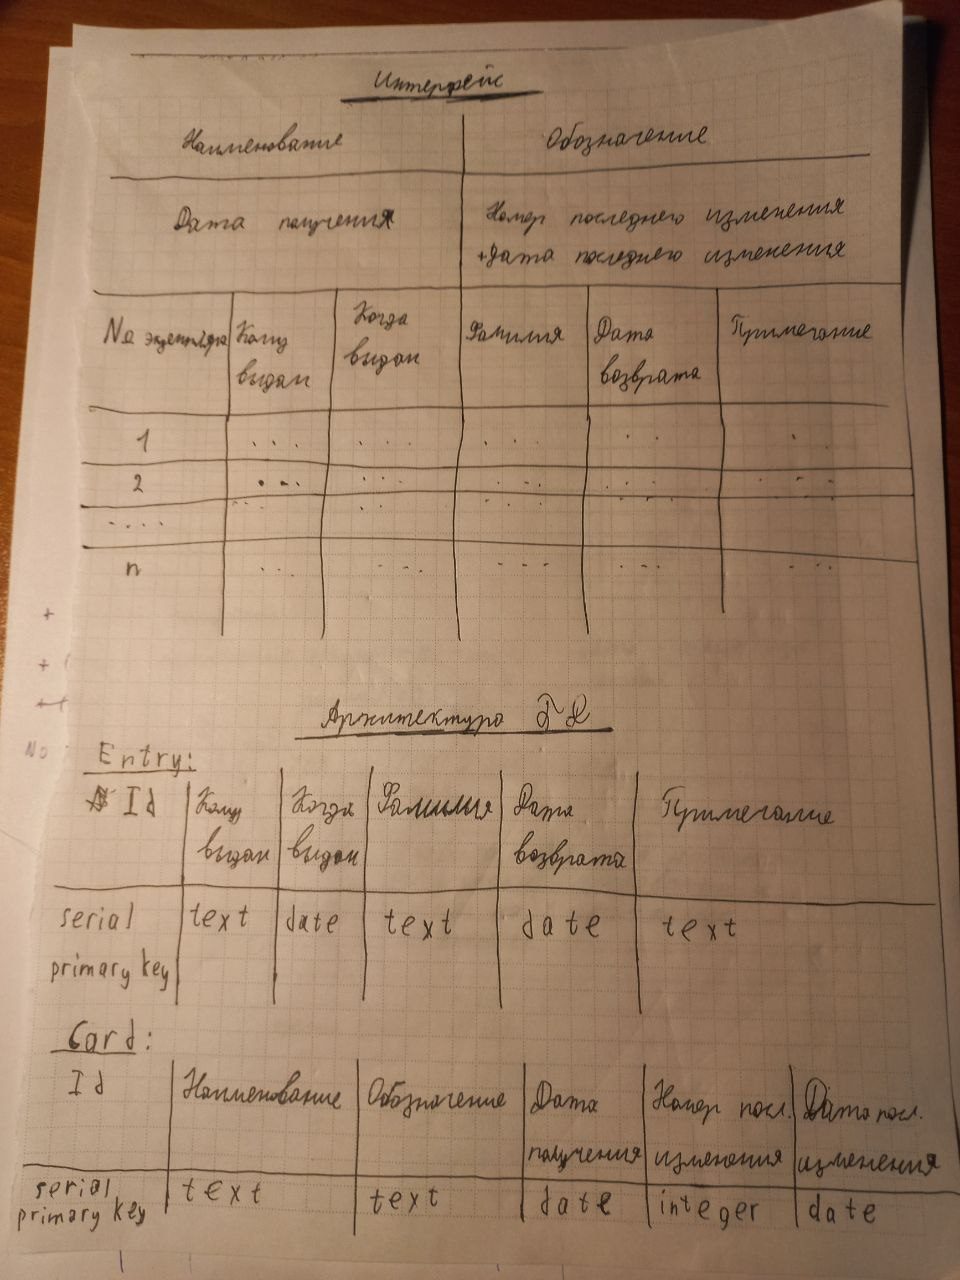 Интерфейс
Наименование Обозначение
Дата получения Номер последнего изменения
+дата последнего изменения
№ Кому выдан Когда выдан Фамилия Дата возврата Примечание
1 ... ... ... .. .
2 ... ... ... ... ...
.... ... .. ... ...
n ... ... ... ... ...
Архитектура БД
Entry:
Id Кому выдан Когда выдан Фамилия Дата возврата Примечание
serial primary key text date text date text
Card:
Id Наименование Обозначение Дата получения Номер посл. изменения Дата посл. изменения
serial primary key text text date integer date
+
+
No